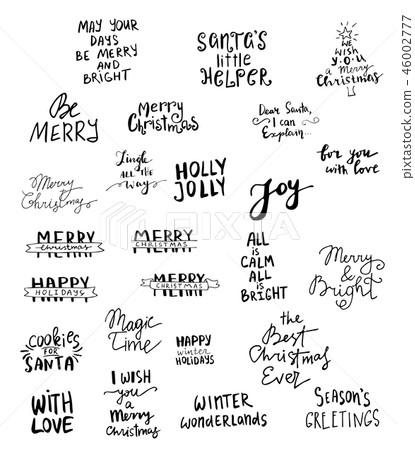 MAY YOUR
DAYS
BE MERRY
AND
BRIGHT
SANTA'S
little
HELPER
WE
WISH
Y•O•U
a Merry
Christmas
Be
MERRY
Merry
Christmas
Dear Santa,
I can
Explain...
for you
with love
Merry
Christmas
Jingle
ALL THE
Way
HOLLY
JOLLY
Joy
MERRY
Christmas
MERRY
CHRISTMAS
ALL
is
CALM
ALL
is
BRIGHT
Merry
&
Bright
HAPPY
HOLIDAYS
MERRY
CHRISTMAS
COOKIES
FOR
SANTA
Magic
Time
HAPPY
winter
HOLIDAYS
the
Best
Christmas
Ever
WITH
LOVE
I WISH
you
a
Merry
Christmas
WINTER
wonderlands
SEASON'S
GREETINGS
PIXTA
pixta.jp - 46002777